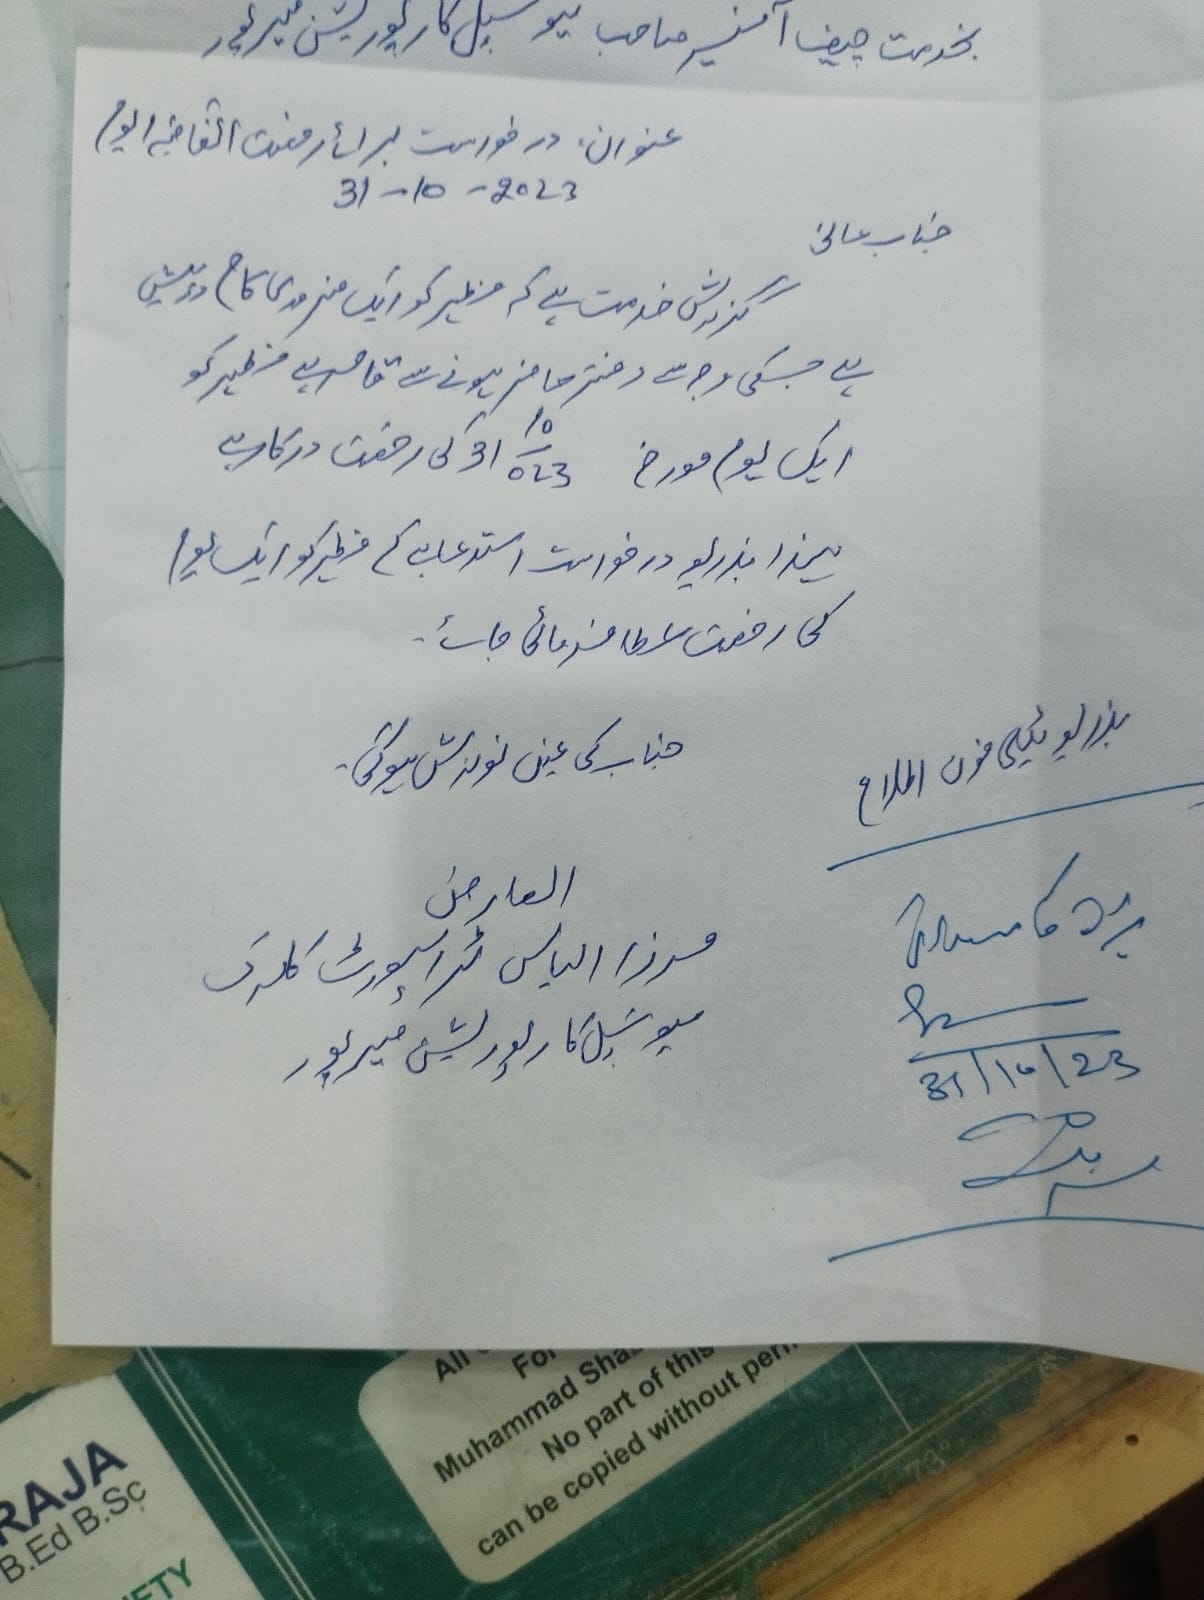 بخدمت چیف آفیسر صاحب میونسپل کارپوریشن میرپور
عنوان: درخواست برائے رخصت اتفاقیہ ایوم
31-10-2023
جناب عالی
گزارش خدمت ہے کہ مظہر کو ایک ضروری کام درپیش
ہے جسکی وجہ سے دفتر حاضر ہونے سے قاصر ہے مظہر کو
ایک یوم مورخہ 31 10/023 کی رخصت درکار ہے
لہذا بذریعہ درخواست استدعا ہے کہ مظہر کو ایک یوم
کی رخصت عطا فرمائی جائے۔
جناب کی عین نوازش ہوگی۔
بذریعہ ٹیلی فون اطلاع
العارض
مرزا الیاس ٹرانسپورٹ کلرک
میونسپل کارپوریشن میرپور
31/10/23
All
For
Muhammad Sha
No part of this
can be copied without per
RAJA
B.Ed B.Sc
ETY
73°